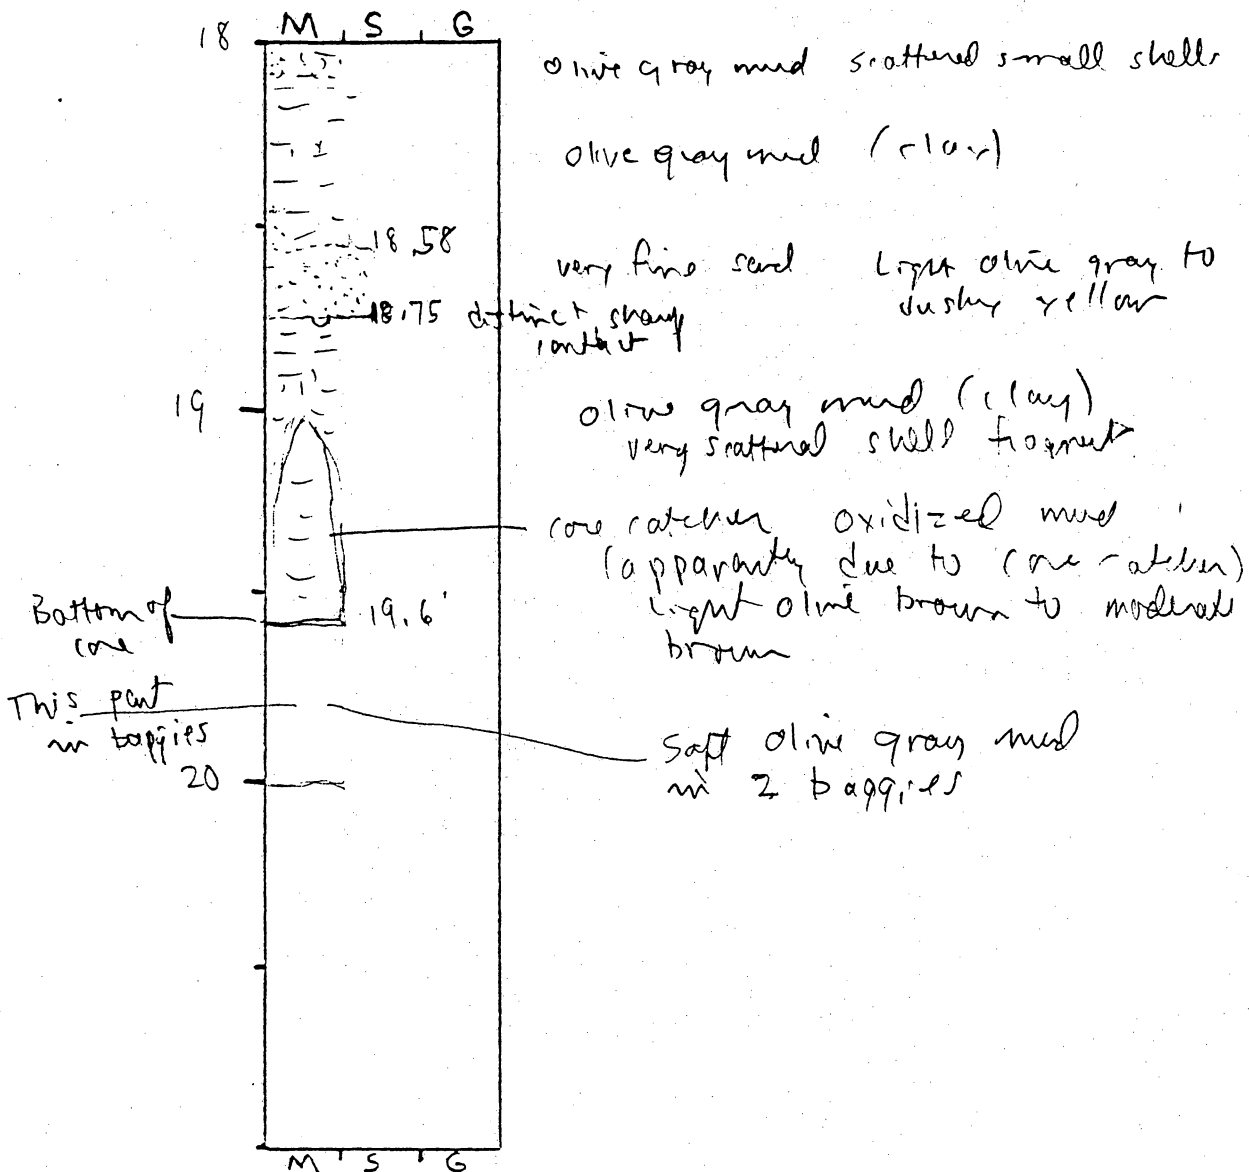 M S G
18
olive gray mud scattered small shells
olive gray mud (clay)
18.58
very fine sand Light olive gray to
dusky yellow
18.75 distinct sharp
contact
19
olive gray mud (clay)
very scattered shell fragments
core catcher oxidized mud
(apparantly due to core catcher)
Light olive brown to moderate
brown
Bottom of
core
19.6'
This part
in baggies
Soft olive gray mud
in 2 baggies
20
M S G